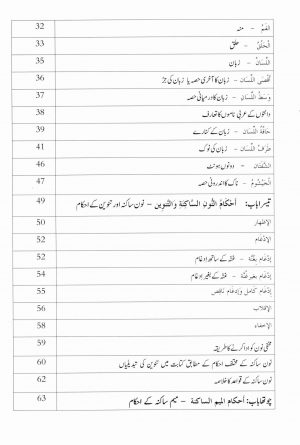 الفَمُ - منہ 32
الحَلْقُ - حلق 33
اللِّسَانُ - زبان 35
أَقْصَى اللِّسَان - زبان کا آخری حصہ یا زبان کی جڑ 36
وَسَطُ اللِّسَان - زبان کا درمیانی حصہ 37
دانتوں کے عربی ناموں کا تعارف 38
حَافَةُ اللِّسَان - زبان کے کنارے 39
طَرَفُ اللِّسَان - زبان کی نوک 41
الشَّفَتَان - دونوں ہونٹ 46
الْخَيْشُوم - ناک کا اندرونی حصہ 47
تیسرا باب: أَحْكَامُ النُّونِ السَّاكِنَةِ وَالتَّنْوِين - نون ساکنہ اور تنوین کے احکام 49
الإظهار 50
الإدغام 52
إدغام بغُنَّة - غنہ کے ساتھ ادغام 52
إدغام بغيرِ غُنَّة - غنہ کے بغیر ادغام 54
إدغام كامل وإدغام ناقص 55
الإقلاب 56
الإخفاء 58
مخفی نون کو ادا کرنے کا طریقہ 59
نون ساکنہ کے مختلف احکام کے مطابق کتابت میں تنوین کی تبدیلیاں 60
نون ساکنہ کے قواعد کا خلاصہ 62
چوتھا باب: أحكام الميم الساكنة - میم ساکنہ کے احکام 63